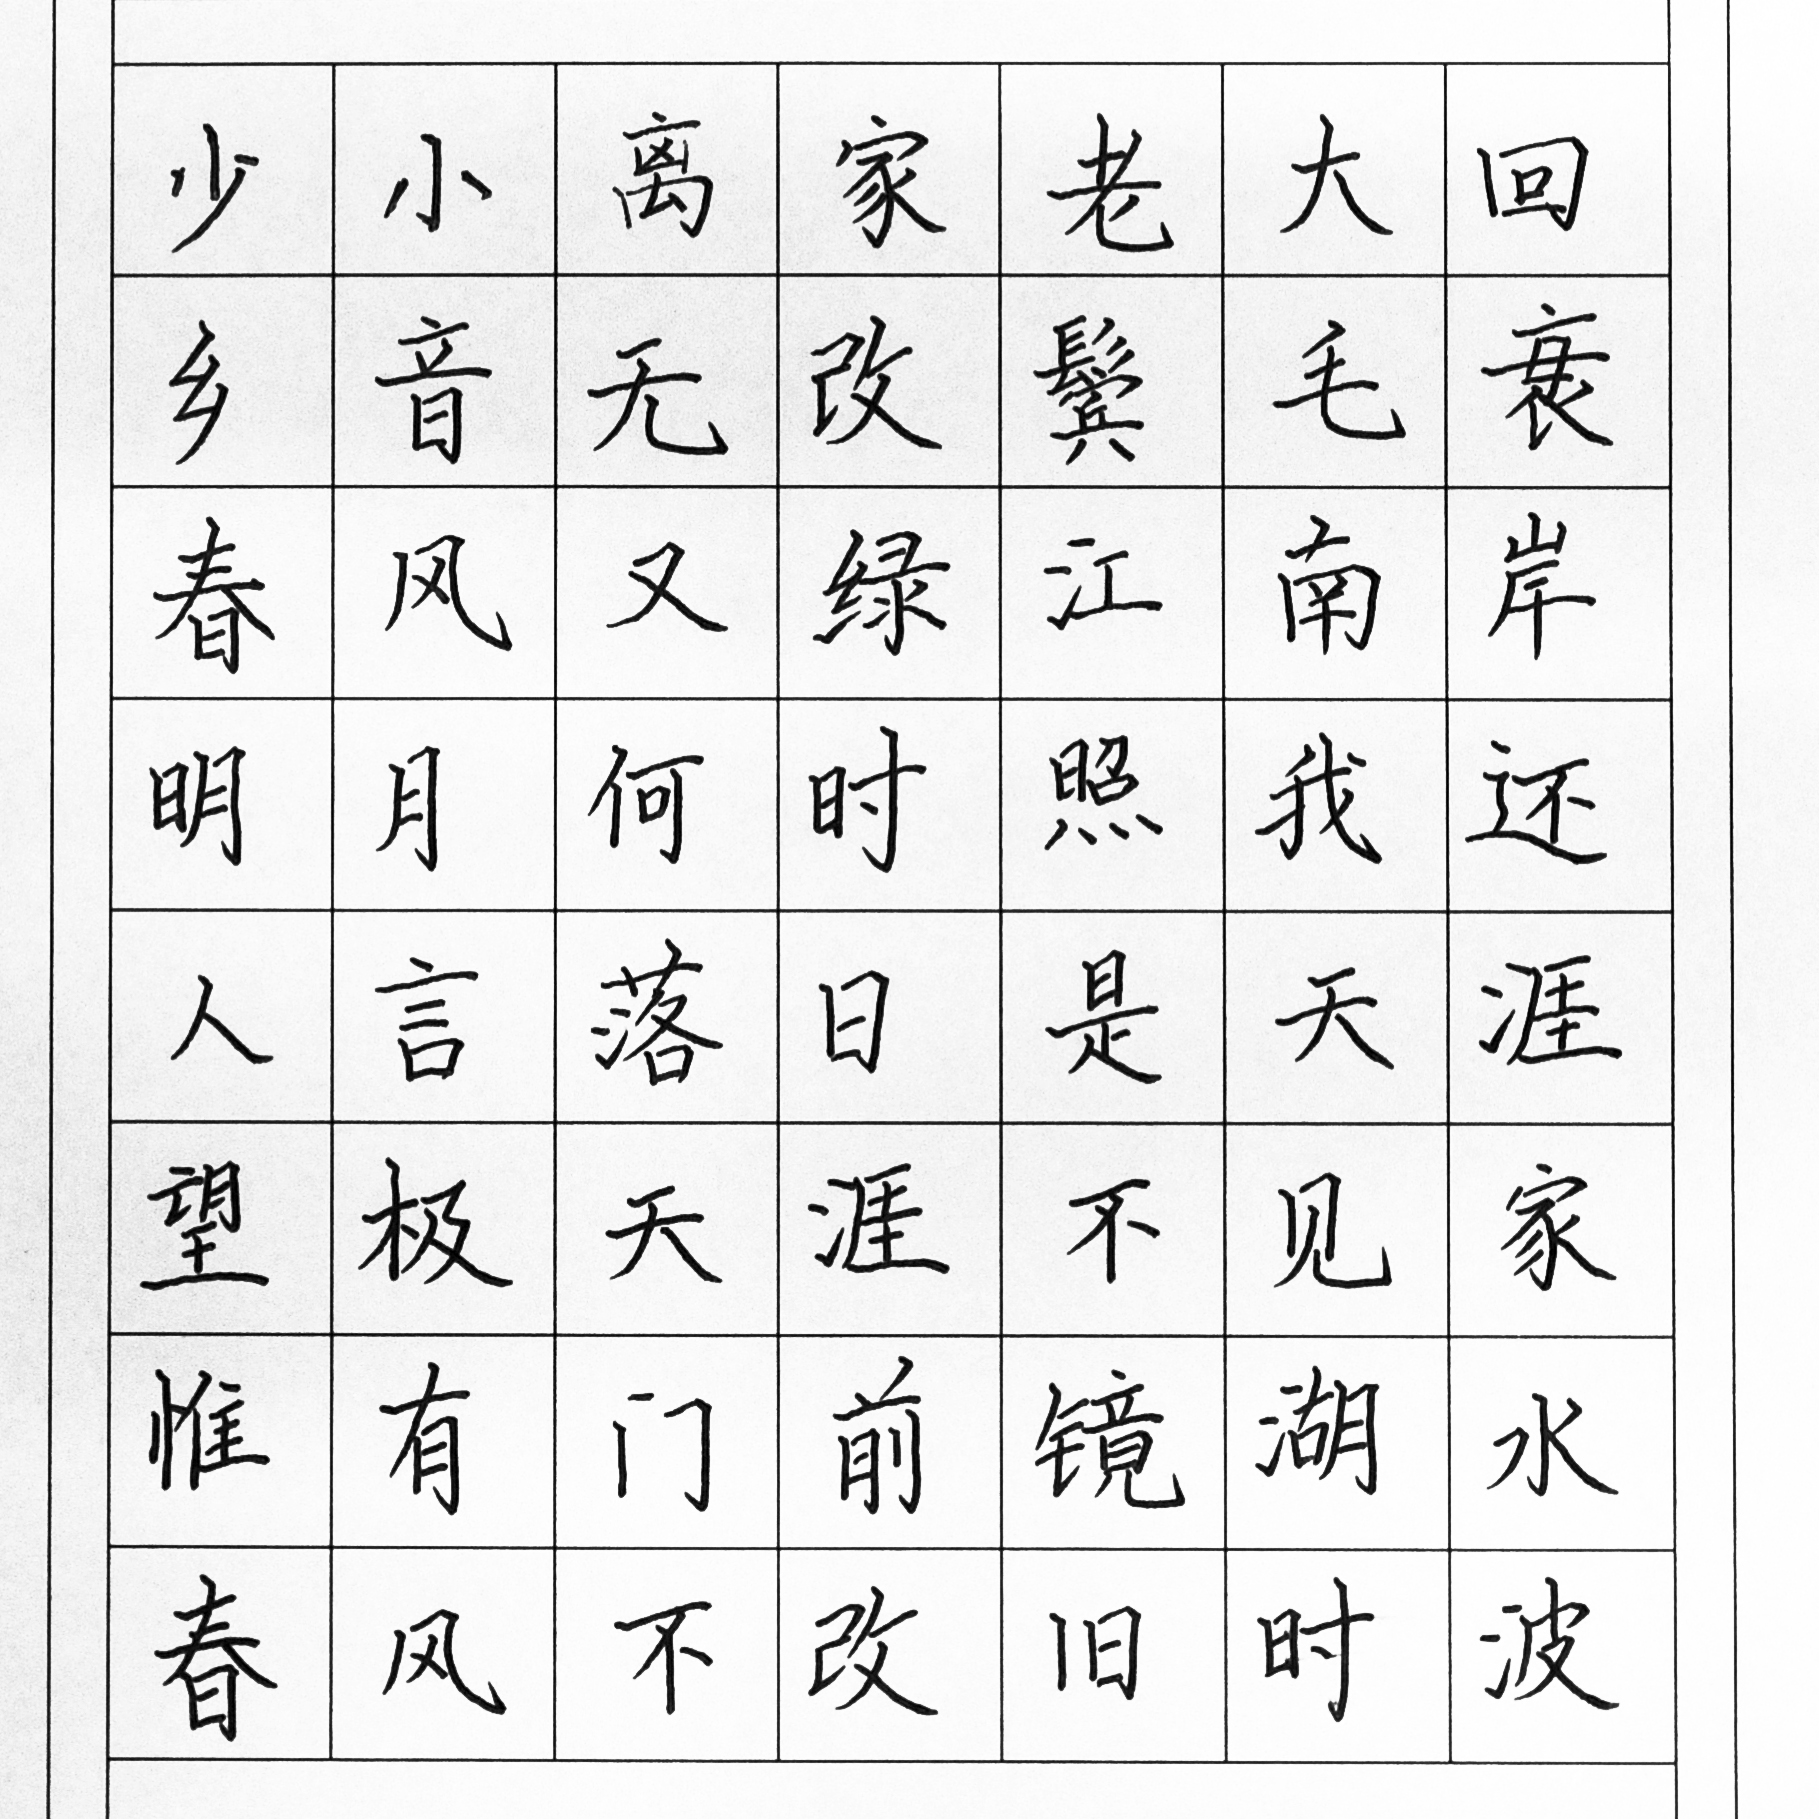 少小离家老大回
乡音无改鬓毛衰
春风又绿江南岸
明月何时照我还
人言落日是天涯
望极天涯不见家
惟有门前镜湖水
春风不改旧时波